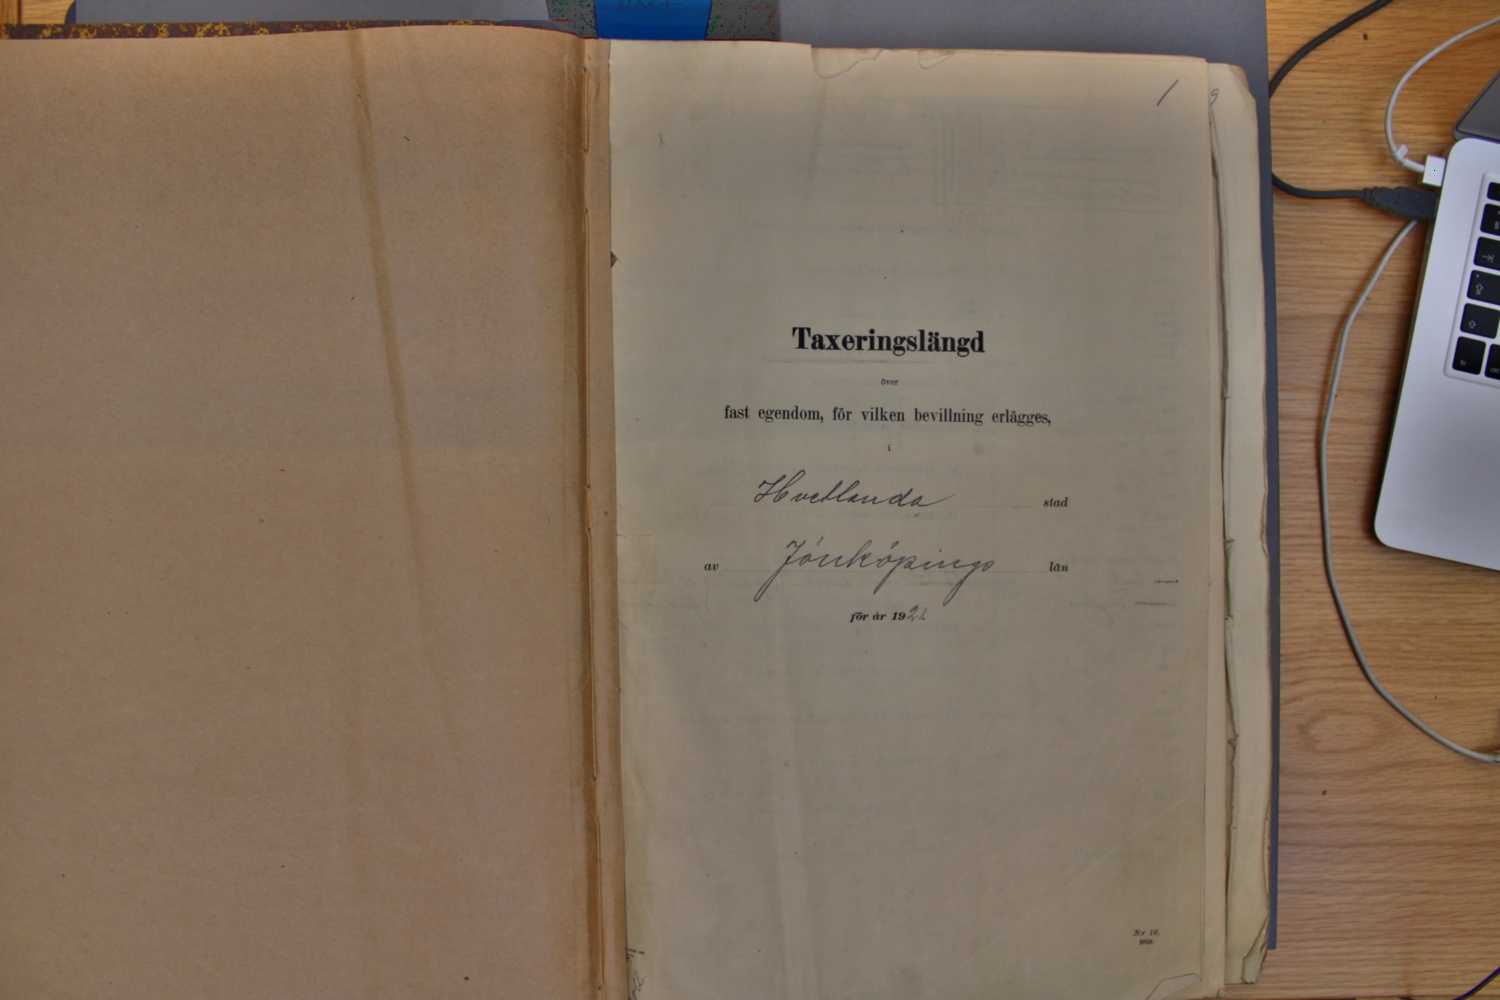 1
Taxeringslängd
över
fast egendom, för vilken bevillning erlägges,
i
Hvetlanda stad
av Jönköpings län
för år 1921.
N:r 10.